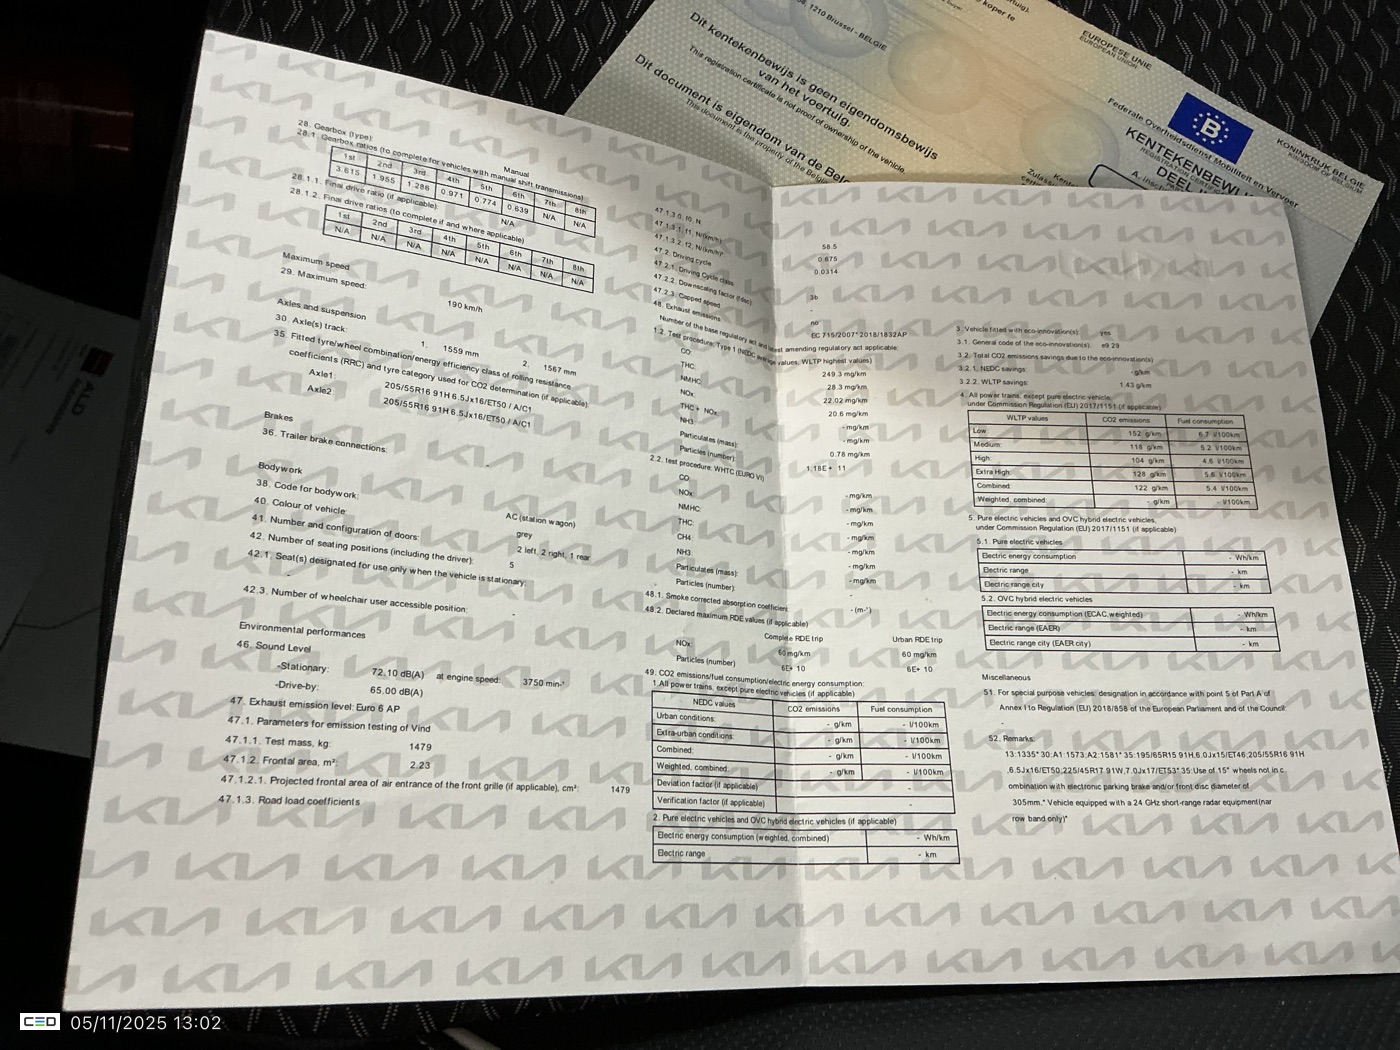 28. Gearbox (type): Manual
28.1. Gearbox ratios (to complete for vehicles with manual shift transmissions)
1st 2nd 3rd 4th 5th 6th 7th 8th
3.615 1.955 1.286 0.971 0.774 0.639 N/A N/A
28.1.1. Final drive ratio (if applicable): N/A
28.1.2. Final drive ratios (to complete if and where applicable)
1st 2nd 3rd 4th 5th 6th 7th 8th
N/A N/A N/A N/A N/A N/A N/A N/A
Maximum speed
29. Maximum speed: 190 km/h
Axles and suspension
30. Axle(s) track: 1. 1559 mm 2. 1567 mm
35. Fitted tyre/wheel combination/energy efficiency class of rolling resistance
coefficients (RRC) and tyre category used for CO2 determination (if applicable):
Axle1 205/55R16 91H 6.5Jx16/ET50 / A/C1
Axle2 205/55R16 91H 6.5Jx16/ET50 / A/C1
Brakes
36. Trailer brake connections: -
Bodywork
38. Code for bodywork: AC (station wagon)
40. Colour of vehicle: grey
41. Number and configuration of doors: 2 left, 2 right, 1 rear
42. Number of seating positions (including the driver): 5
42.1. Seat(s) designated for use only when the vehicle is stationary:
-
42.3. Number of wheelchair user accessible position: -
Environmental performances
46. Sound Level
-Stationary: 72.10 dB(A) at engine speed: 3750 min-¹
-Drive-by: 65.00 dB(A)
47. Exhaust emission level: Euro 6 AP
47.1. Parameters for emission testing of Vind
47.1.1. Test mass, kg: 1479
47.1.2. Frontal area, m²: 2.23
47.1.2.1. Projected frontal area of air entrance of the front grille (if applicable), cm²: 1479
47.1.3. Road load coefficients
47.1.3.0. f0, N: 58.5
47.1.3.1. f1, N/(km/h) 0.675
47.1.3.2. f2, N/(km/h)² 0.0314
47.2. Driving cycle
47.2.1. Driving Cycle class: 3b
47.2.2. Downscaling factor (fdsc): -
47.2.3. Capped speed no
48. Exhaust emissions
Number of the base regulatory act and latest amending regulatory act applicable: EC 715/2007*2018/1832AP
1.2. Test procedure: Type 1 (NEDC average values, WLTP highest values)
CO: 249.3 mg/km
THC: 28.3 mg/km
NMHC: 22.02 mg/km
NOx: 20.6 mg/km
THC + NOx: - mg/km
NH3: - mg/km
Particulates (mass): 0.78 mg/km
Particles (number): 1.18E+ 11
2.2. test procedure: WHTC (EURO VI)
CO: - mg/km
NOx: - mg/km
NMHC: - mg/km
THC: - mg/km
CH4 - mg/km
NH3 - mg/km
Particulates (mass): - mg/km
Particles (number): -
48.1. Smoke corrected absorption coefficient: - (m-¹)
48.2. Declared maximum RDE values (if applicable)
Complete RDE trip Urban RDE trip
NOx: 60 mg/km 60 mg/km
Particles (number) 6E+ 10 6E+ 10
49. CO2 emissions/fuel consumption/electric energy consumption:
1. All power trains, except pure electric vehicles (if applicable)
NEDC values CO2 emissions Fuel consumption
Urban conditions: - g/km - l/100km
Extra-urban conditions: - g/km - l/100km
Combined: - g/km - l/100km
Weighted, combined: - g/km - l/100km
Deviation factor (if applicable) -
Verification factor (if applicable) -
2. Pure electric vehicles and OVC hybrid electric vehicles (if applicable)
Electric energy consumption (weighted, combined) - Wh/km
Electric range - km
3. Vehicle fitted with eco-innovation(s): yes
3.1. General code of the eco-innovation(s): e9 29
3.2. Total CO2 emissions savings due to the eco-innovation(s)
3.2.1. NEDC savings: - g/km
3.2.2. WLTP savings: 1.43 g/km
4. All power trains, except pure electric vehicle,
under Commission Regulation (EU) 2017/1151 (if applicable)
WLTP values CO2 emissions Fuel consumption
Low: 152 g/km 6.7 l/100km
Medium: 118 g/km 5.2 l/100km
High: 104 g/km 4.6 l/100km
Extra High: 128 g/km 5.6 l/100km
Combined: 122 g/km 5.4 l/100km
Weighted, combined: - g/km - l/100km
5. Pure electric vehicles and OVC hybrid electric vehicles,
under Commission Regulation (EU) 2017/1151 (if applicable)
5.1. Pure electric vehicles
Electric energy consumption - Wh/km
Electric range - km
Electric range city - km
5.2. OVC hybrid electric vehicles
Electric energy consumption (ECAC,weighted) - Wh/km
Electric range (EAER) - km
Electric range city (EAER city) - km
Miscellaneous
51. For special purpose vehicles: designation in accordance with point 5 of Part A of
Annex I to Regulation (EU) 2018/858 of the European Parliament and of the Council:
-
52. Remarks:
13:1335*30:A1:1573,A2:1581*35:195/65R15 91H,6.0Jx15/ET46;205/55R16 91H
,6.5Jx16/ET50;225/45R17 91W,7.0Jx17/ET53*35:Use of 15" wheels not in c
ombination with electronic parking brake and/or front disc diameter of
305mm.* Vehicle equipped with a 24 GHz short-range radar equipment(nar
row band only)*
1210 Brussel - BELGIE
koper te
Dit kentekenbewijs is geen eigendomsbewijs
van het voertuig.
This registration certificate is not proof of ownership of the vehicle.
Dit document is eigendom van de
This document is the property of the
EUROPESE UNIE
EUROPEAN UNION
B
KONINKRIJK BELGIE
KINGDOM OF BELGIUM
Federale Overheidsdienst Mobiliteit en Vervoer
KENTEKENBEWI
DEEL
ALD
KIA
CED 05/11/2025 13:02